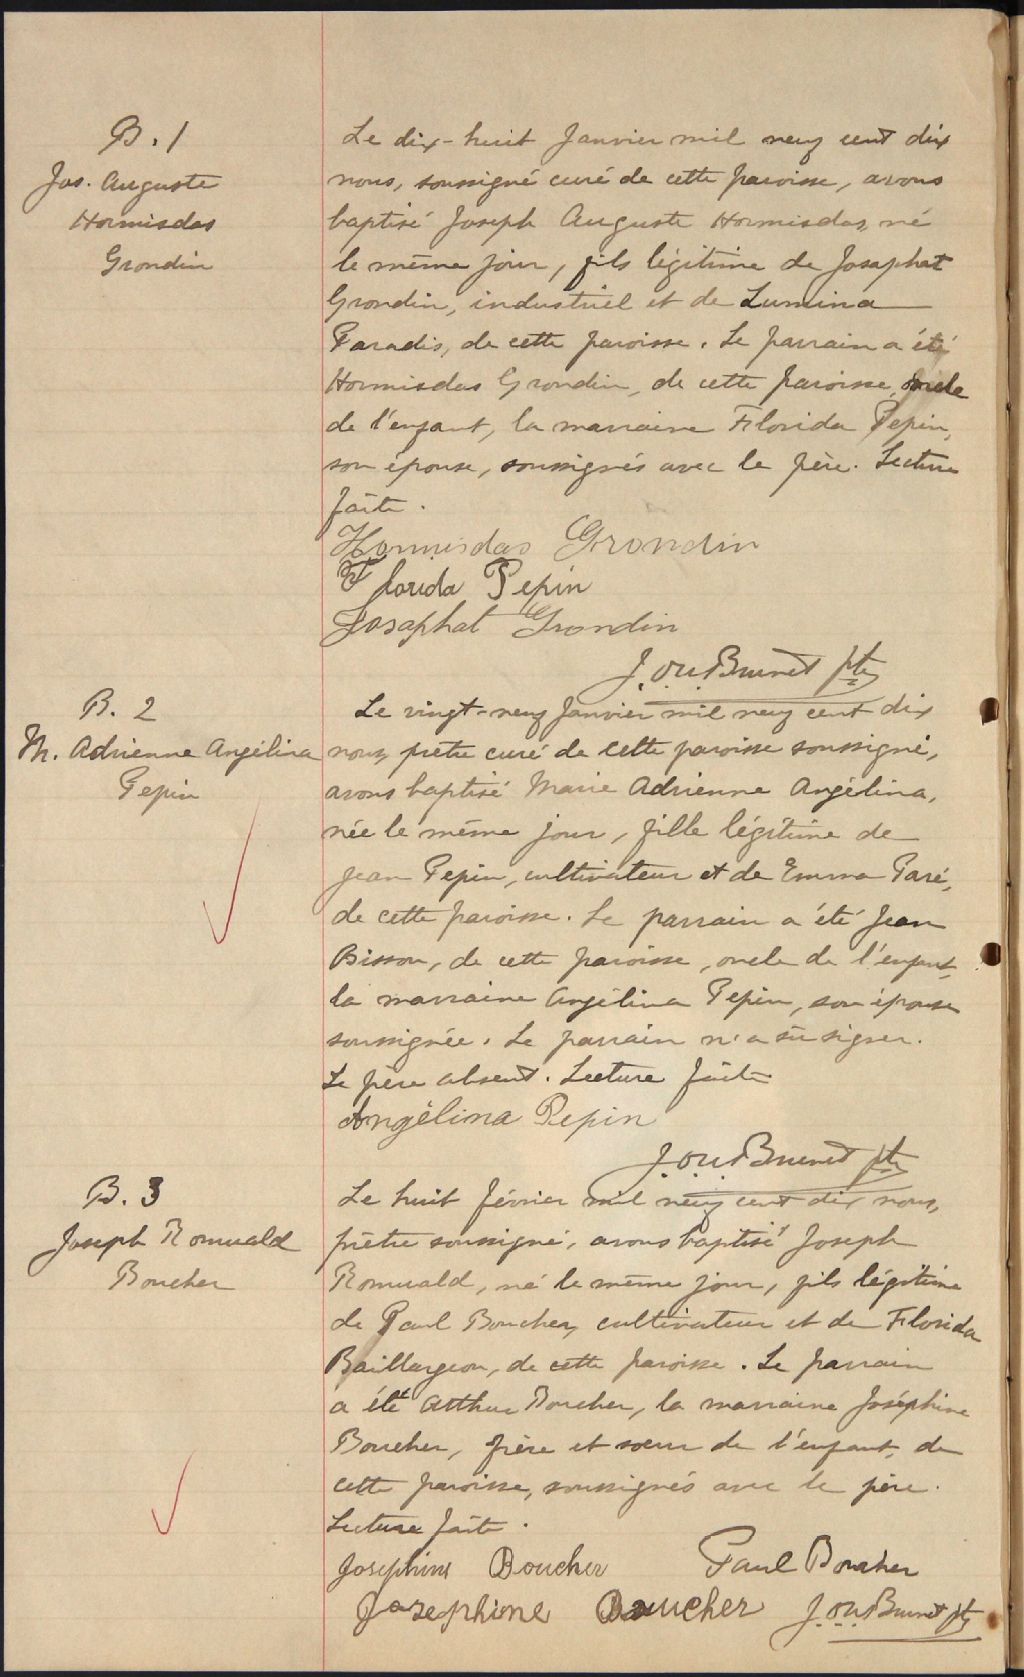 B. 1
Jos. Auguste
Hormisdas
Grondin
Le dix-huit Janvier mil neuf cent dix
nous, soussigné curé de cette paroisse, avons
baptisé Joseph Auguste Hormisdas, né
le même jour, fils légitime de Josaphat
Grondin, industriel et de Lumina
Paradis, de cette paroisse. Le parrain a été
Hormisdas Grondin, de cette paroisse, oncle
de l'enfant, la marraine Florida Pepin,
son épouse, soussignés avec le père. Lecture
faite.
Hormisdas Grondin
Florida Pepin
Josaphat Grondin
J. Ou. Brunet ptre
B. 2
M. Adrienne Angélina
Pepin
Le vingt-neuf Janvier mil neuf cent dix
nous, prêtre curé de cette paroisse soussigné,
avons baptisé Marie Adrienne Angélina,
née le même jour, fille légitime de
Jean Pepin, cultivateur et de Emma Paré,
de cette paroisse. Le parrain a été Jean
Bisson, de cette paroisse, oncle de l'enfant,
la marraine Angélina Pepin, son épouse
soussignée. Le parrain n'a su signer.
Le père absent. Lecture faite
Angélina Pepin
J. Ou. Brunet ptre
B. 3
Joseph Romuald
Boucher
Le huit février mil neuf cent dix nous,
prêtre soussigné, avons baptisé Joseph
Romuald, né le même jour, fils légitime
de Paul Boucher, cultivateur et de Florida
Baillargeon, de cette paroisse. Le parrain
a été Arthur Boucher, la marraine Joséphine
Boucher, frère et soeur de l'enfant, de
cette paroisse, soussignés avec le père.
Lecture faite.
Josephine Boucher Paul Boucher
Josephine Boucher J. Ou. Brunet ptre